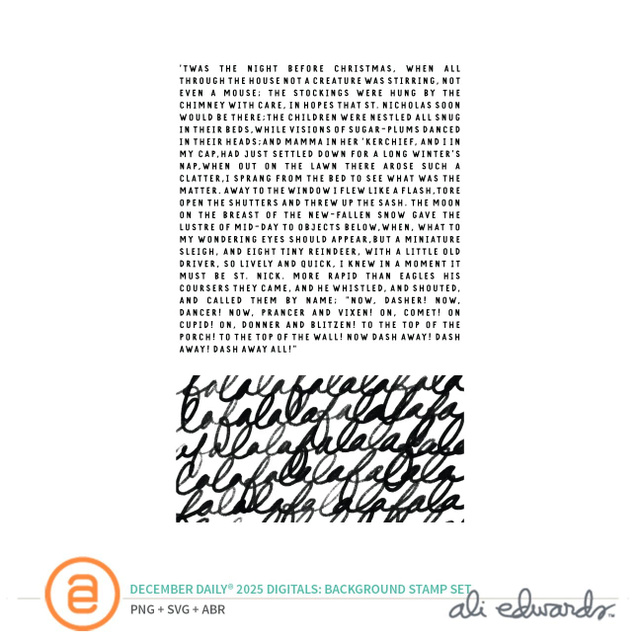 'TWAS THE NIGHT BEFORE CHRISTMAS, WHEN ALL
THROUGH THE HOUSE NOT A CREATURE WAS STIRRING, NOT
EVEN A MOUSE; THE STOCKINGS WERE HUNG BY THE
CHIMNEY WITH CARE, IN HOPES THAT ST. NICHOLAS SOON
WOULD BE THERE;THE CHILDREN WERE NESTLED ALL SNUG
IN THEIR BEDS,WHILE VISIONS OF SUGAR-PLUMS DANCED
IN THEIR HEADS;AND MAMMA IN HER 'KERCHIEF, AND I IN
MY CAP,HAD JUST SETTLED DOWN FOR A LONG WINTER'S
NAP,WHEN OUT ON THE LAWN THERE AROSE SUCH A
CLATTER,I SPRANG FROM THE BED TO SEE WHAT WAS THE
MATTER. AWAY TO THE WINDOW I FLEW LIKE A FLASH,TORE
OPEN THE SHUTTERS AND THREW UP THE SASH. THE MOON
ON THE BREAST OF THE NEW-FALLEN SNOW GAVE THE
LUSTRE OF MID-DAY TO OBJECTS BELOW,WHEN, WHAT TO
MY WONDERING EYES SHOULD APPEAR,BUT A MINIATURE
SLEIGH, AND EIGHT TINY REINDEER, WITH A LITTLE OLD
DRIVER, SO LIVELY AND QUICK, I KNEW IN A MOMENT IT
MUST BE ST. NICK. MORE RAPID THAN EAGLES HIS
COURSERS THEY CAME, AND HE WHISTLED, AND SHOUTED,
AND CALLED THEM BY NAME; "NOW, DASHER! NOW,
DANCER! NOW, PRANCER AND VIXEN! ON, COMET! ON
CUPID! ON, DONNER AND BLITZEN! TO THE TOP OF THE
PORCH! TO THE TOP OF THE WALL! NOW DASH AWAY! DASH
AWAY! DASH AWAY ALL!"
falalalafalalalafalala
lalafalalalafalalalafala
falalalafalalalafala
lalafalalalafalala
falalalafalalalafala
a
DECEMBER DAILY® 2025 DIGITALS: BACKGROUND STAMP SET
PNG + SVG + ABR
ali edwards™